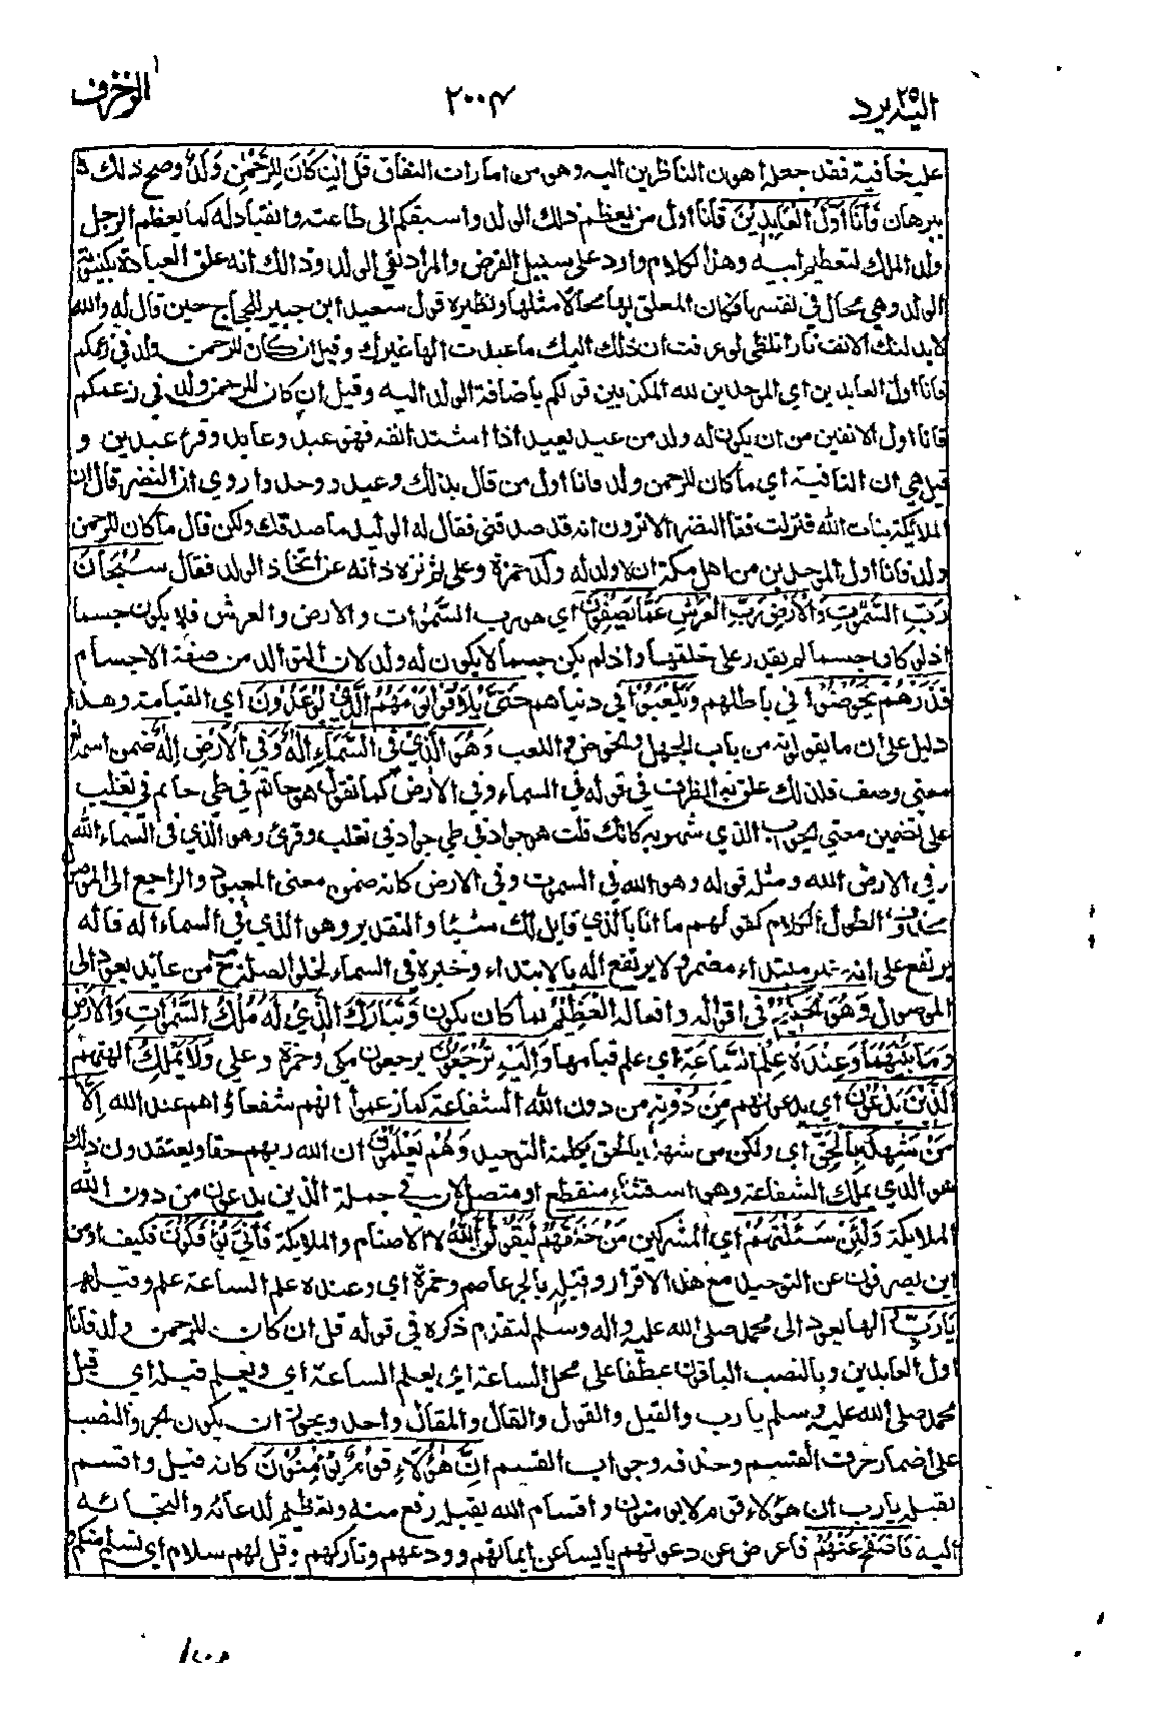 اليه يرد ٢٥
٢٠٠٤
الزخرف
عليه خافية فقد جعله اهون الناظرين اليه وهو من امارات النفاق قُلْ اِنْ كَانَ لِلرَّحْمٰنِ وَلَدٌ وصح ذلك
ببرهان فَأَنَا أَوَّلُ الْعَابِدِيْنَ فأنا اول من يعظم ذلك الولد واسبقكم الى طاعته والانقياد له كما يعظم الرجل
ولد الملك لتعظيم ابيه وهذا الكلام وارد على سبيل الفرض والمراد نفي الولد وذالك انه علق العبادة بكينونة
الولد وهي محال في نفسها فكان المعلق بها محالا مثلها ونظيره قول سعيد ابن جبير للحجاج حين قال له والله
لابدلنك نارا تلظى لو عرفت ان ذلك اليك ما عبدت الها غيرك وقيل ان كان للرحمن ولد في زعمكم
فانا اول العابدين اي الموحدين لله المكذبين قولكم باضافة الولد اليه وقيل ان كان للرحمن ولد في زعمكم
فانا اول الانفين من ان يكون له ولد من عبد يعبد اذا اشتد انفه فهو عبد وعابد وقرئ عبدين و
قيل هي ان النافية اي ما كان للرحمن ولد فانا اول من قال بذلك وعبد ووحد وروي ان النضر قال ان
الملائكة بنات الله فنزلت فقال النضر الا ترون انه قد صدقني فقال له الوليد ما صدقك ولكن قال ما كان للرحمن
ولد فانا اول الموحدين من اهل مكة ان لا ولد له وُلْد حمزة وعلي ثم نزه ذاته عن اتخاذ الولد فقال سُبْحَانَ
رَبِّ السَّمٰوٰتِ وَالْأَرْضِ رَبِّ الْعَرْشِ عَمَّا يَصِفُوْنَ اي هو رب السمٰوات والارض والعرش فلا يكون جسما
اذ لو كان جسما لم يقدر على خلقها واذا لم يكن جسما لا يكون له ولد لان التوالد من صفة الاجسام
فَذَرْهُمْ يَخُوْضُوْا في باطلهم وَيَلْعَبُوْا في دنياهم حَتّٰى يُلٰقُوْا يَوْمَهُمُ الَّذِيْ يُوْعَدُوْنَ اي القيامة وهذا
دليل على ان ما يقولونه من باب الجهل والخوض واللعب وَهُوَ الَّذِيْ فِى السَّمَاءِ اِلٰهٌ وَّفِى الْأَرْضِ اِلٰهٌ ضمن اسمه تعالى
معنى وصف فلذلك علق به الظرف في قوله في السماء وفي الارض كما تقول هو حاتم في طي حاتم في تغلب
على تضمين معنى الجواد الذي شهر به كانك قلت هو جواد في طي جواد في تغلب وقرئ وهو الذي في السماء الله
وفي الارض الله ومثله قوله وهو الله في السموت وفي الارض كانه ضمن معنى المعبود والراجع الى الموصول
محذوف لطول الكلام كقولهم ما انا بالذي قايل لك شيئا والتقدير وهو الذي هو في السماء اله فاله
يرتفع على انه خبر مبتداء مضمر ولا يرتفع اله بالابتداء وخبره في السماء لخلو الصلة ح من عايد يعود الى
الموصول وَهُوَ الْحَكِيْمُ في اقواله وافعاله الْعَلِيْمُ بما كان يكون وَتَبَارَكَ الَّذِيْ لَهٗ مُلْكُ السَّمٰوٰتِ وَالْأَرْضِ
وَمَا بَيْنَهُمَا وَعِنْدَهٗ عِلْمُ السَّاعَةِ اي علم قيامها وَاِلَيْهِ تُرْجَعُوْنَ يرجعون مكي وحمزة وعلي وَلَا يَمْلِكُ الهتهم
الَّذِيْنَ يَدْعُوْنَ اي يدعونهم مِنْ دُوْنِهٖ من دون الله الشَّفَاعَةَ كما زعموا انهم شفعاؤهم عند الله اِلَّا
مَنْ شَهِدَ بِالْحَقِّ اي ولكن من شهد بالحق بكلمة التوحيد وَهُمْ يَعْلَمُوْنَ ان الله ربهم حقا ويعتقدون ذلك
هو الذي يملك الشفاعة وهو استثناء منقطع او متصل لان في جملة الذين يدعون من دون الله
الملايكة وَلَئِنْ سَئَلْتَهُمْ اي المشركين مَّنْ خَلَقَهُمْ لَيَقُوْلُنَّ اللّٰهُ لا الاصنام والملايكة فَأَنّٰى يُؤْفَكُوْنَ فكيف او من
اين يصرفون عن التوحيد مع هذا الاقرار وَقِيْلِهٖ بالجر عاصم وحمزة اي وعنده علم الساعة علم وقيله
يَا رَبِّ الها يعود الى محمد صلى الله عليه واله وسلم لتقدم ذكره في قوله قل ان كان للرحمن ولد فانا
اول العابدين وبالنصب الباقون عطفا على محل الساعة اي يعلم الساعة اي ويعلم قيله اي قيل
محمد صلى الله عليه وسلم يا رب والقيل والقول والقال والمقال واحد ويجوز ان يكون الجر والنصب
على اضمار حرف القسم وحذفه وجواب القسم اِنَّ هٰؤُلَاءِ قَوْمٌ لَّا يُؤْمِنُوْنَ كانه قيل واقسم
بقيله يا رب ان هؤلاء قوم لا يومنون واقسام الله بقيله رفع منه وتعظيم لدعائه والتجائه
اليه فَاصْفَحْ عَنْهُمْ فاعرض عن دعوتهم يايسا عن ايمانهم وودعهم وتاركهم وقل لهم سلام اي تسلم منكم